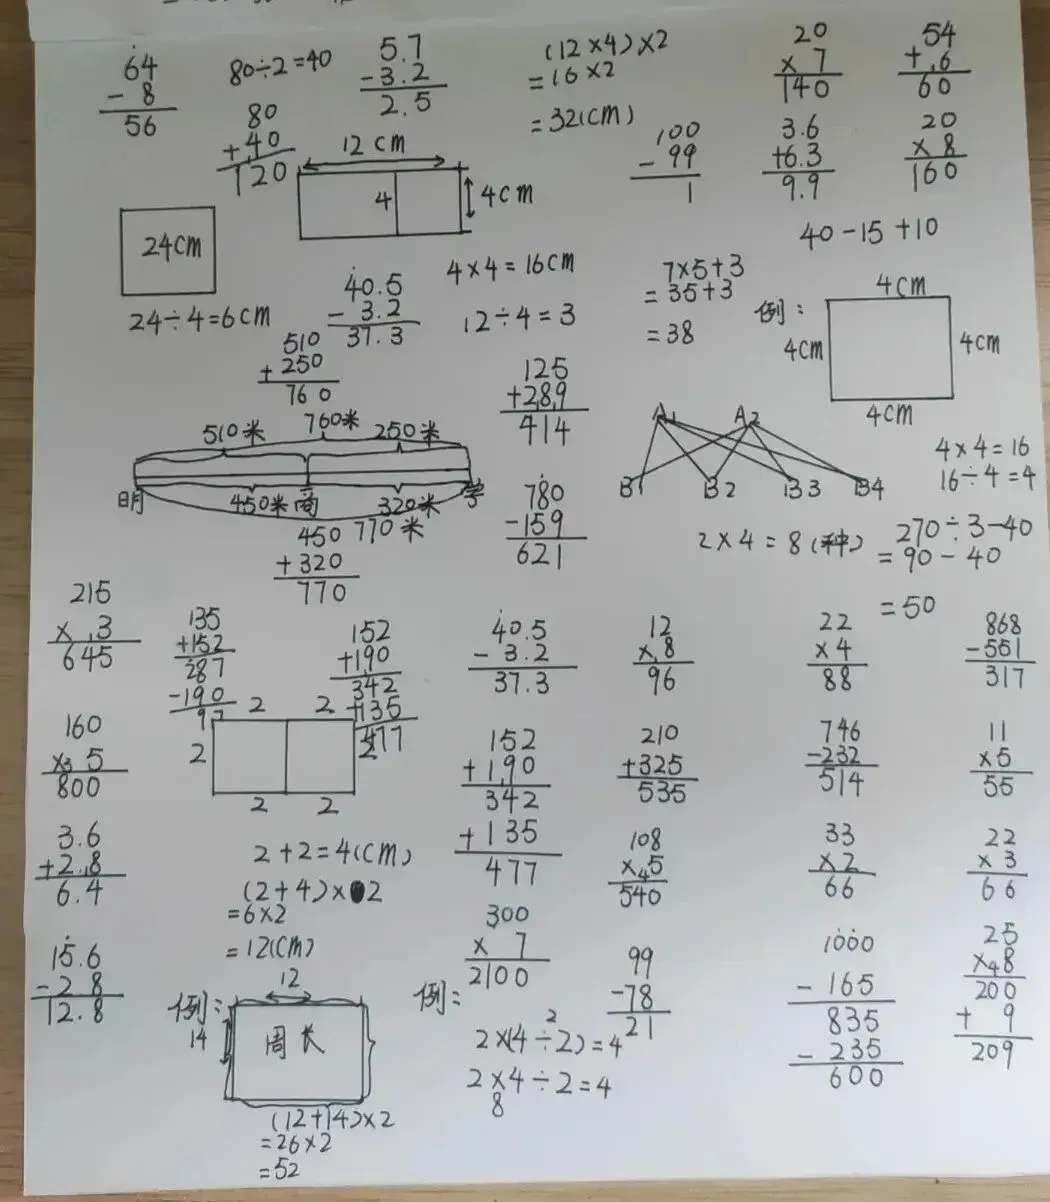 64
- 8
56
80÷2=40
80
+40
120
5.7
-3.2
2.5
(12×4)×2
=16×2
=32(cm)
20
× 7
140
54
+ 6
60
100
- 99
1
3.6
+6.3
9.9
20
× 8
160
12cm
4
4cm
24cm
24÷4=6cm
40.5
- 3.2
37.3
4×4=16cm
12÷4=3
7×5+3
=35+3
=38
40-15+10
例:
4cm
4cm
4cm
4cm
4×4=16
16÷4=4
510
+250
760
125
+289
414
760米
510米
250米
明
450米
商
320米
学
770米
450
+320
770
780
-159
621
A1
A2
B1
B2
B3
B4
2×4=8(种)
270÷3-40
=90-40
=50
215
× 3
645
135
+152
287
-190
97
152
+190
342
+135
477
40.5
- 3.2
37.3
12
× 8
96
22
×4
88
868
-551
317
160
× 5
800
2
2
2
2
2
2
152
+190
342
+135
477
210
+325
535
746
-232
514
11
×5
55
3.6
+2.8
6.4
2+2=4(cm)
(2+4)×2
=6×2
=12(cm)
108
×45
540
33
×2
66
22
×3
66
15.6
-2.8
12.8
300
× 7
2100
99
-78
21
1000
- 165
835
- 235
600
25
×48
200
+ 9
209
例:
12
14
周长
(12+14)×2
=26×2
=52
例:
2
2×(4÷2)=4
2×4÷2=4
8